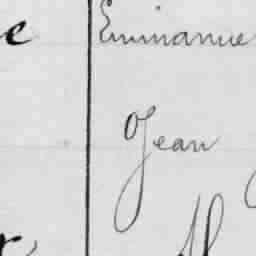 e Emmanue
Jean